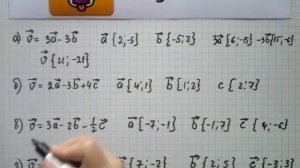 а) v⃗ = 3a⃗ - 3b⃗ a⃗ {2;-5} b⃗ {-5;2} 3a⃗ {6;-15} -3b⃗ {15;-6}
v⃗ {21;-21}
б) v⃗ = 2a⃗ - 3b⃗ + 4c⃗ a⃗ {4;1} b⃗ {1;2} c {2;7}
в) v⃗ = 3a⃗ - 2b⃗ - ½c⃗ a⃗ {-7;-1} b⃗ {-1;7} c⃗ {4;-6}
{7;-2} b⃗ {2;5} a⃗ {-3;3}